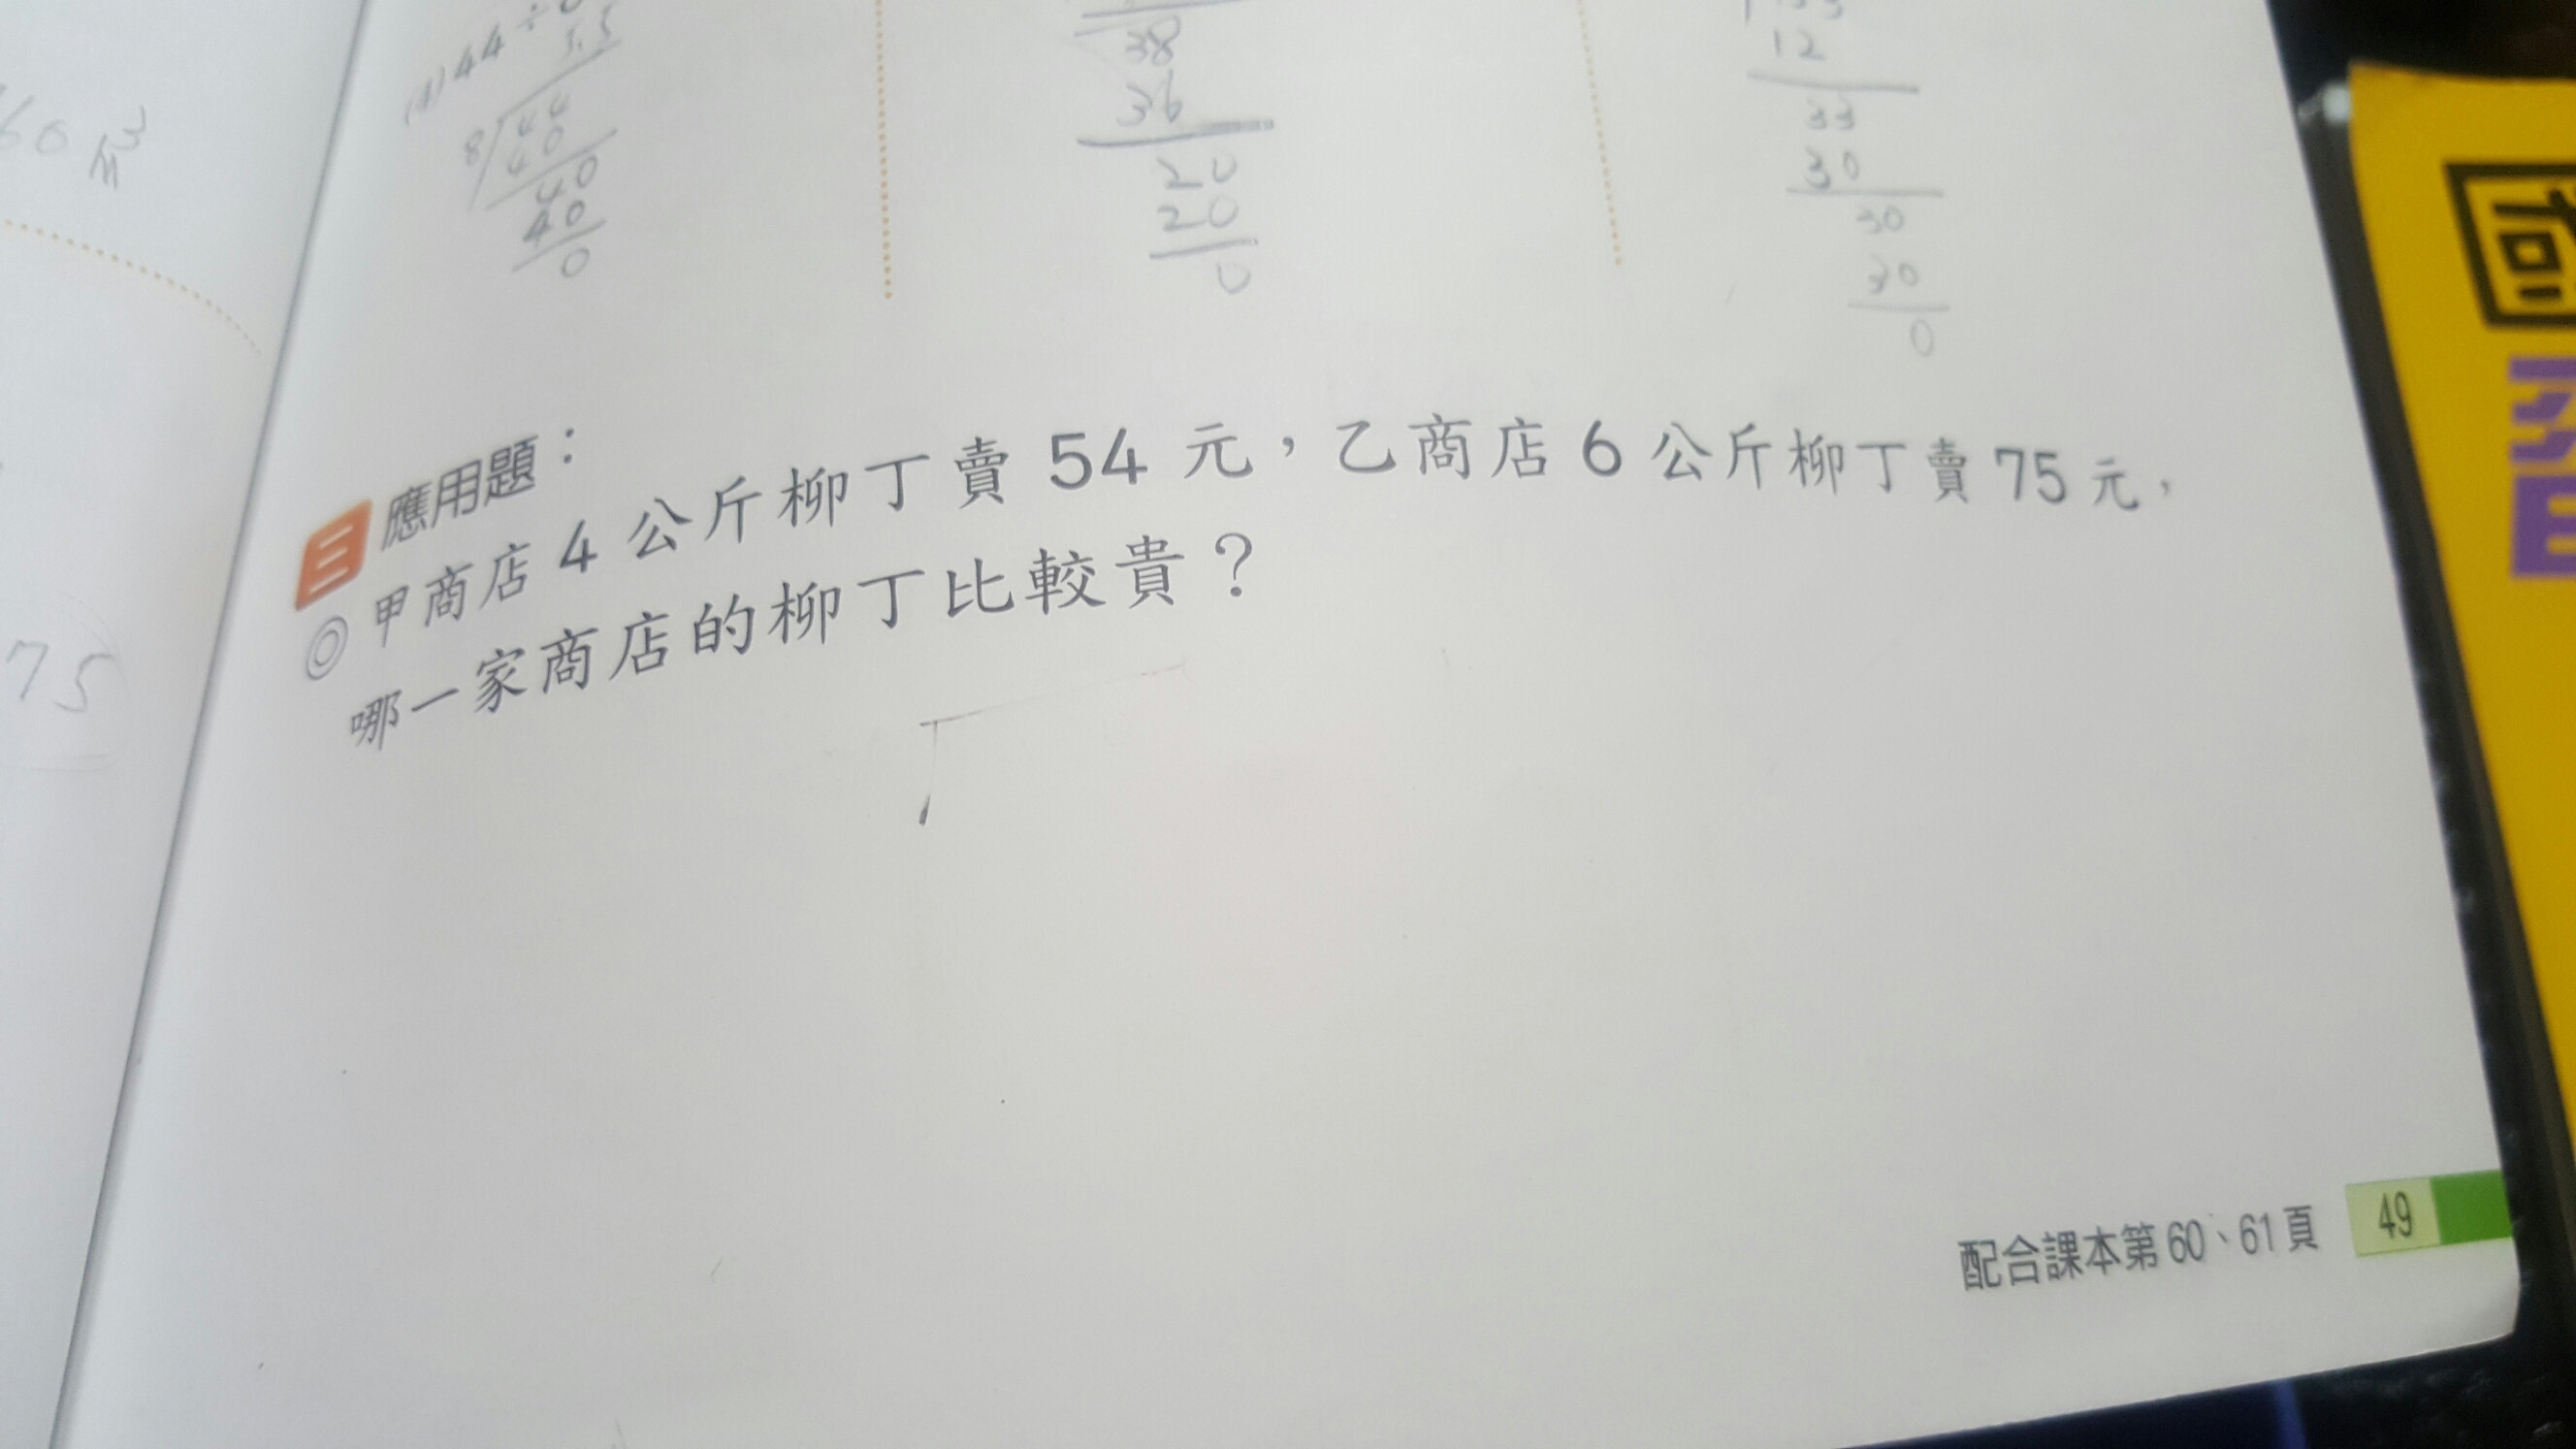 60 m³
75
(4) 44 ÷
5.5
8 44
40
40
40
0
38
36
20
20
0
12
33
30
30
30
0
三 應用題：
◎ 甲商店 4 公斤柳丁賣 54 元，乙商店 6 公斤柳丁賣 75 元，
哪一家商店的柳丁比較貴？
配合課本第 60、61 頁 49
習